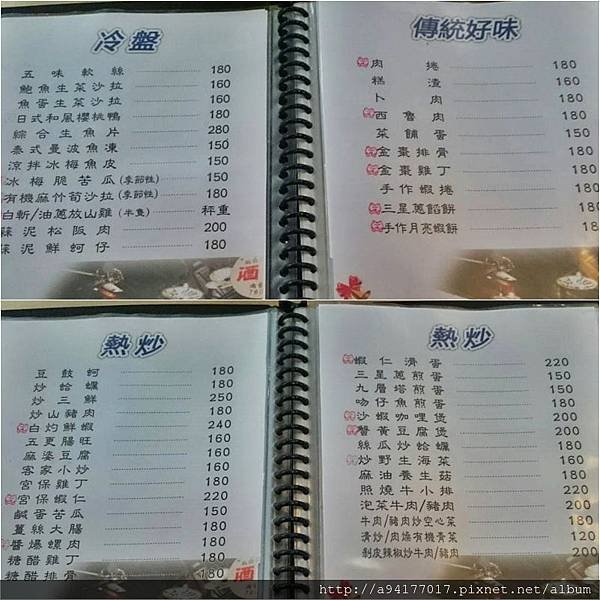 冷盤
五味軟絲 180
鮑魚生菜沙拉 160
魚蛋生菜沙拉 160
日式和風櫻桃鴨 180
綜合生魚片 280
泰式曼波魚凍 150
涼拌冰梅魚皮 150
冰梅脆苦瓜(季節性) 150
有機麻竹筍沙拉(季節性) 180
白斬/油蔥放山雞(半隻) 秤重
蒜泥松阪肉 200
蒜泥鮮蚵仔 180
酒
傳統好味
肉捲 180
糕渣 160
卜肉 180
西魯肉 180
菜脯蛋 150
金棗排骨 180
金棗雞丁 180
手作蝦捲 180
三星蔥餡餅 180
手作月亮蝦餅 180
熱炒
豆鼓蚵 180
炒蛤蠣 180
炒三鮮 250
炒山豬肉 180
白灼鮮蝦 240
五更腸旺 160
麻婆豆腐 160
客家小炒 160
宮保雞丁 180
宮保蝦仁 220
鹹蛋苦瓜 150
薑絲大腸 180
醬爆螺肉 180
糖醋雞丁 180
糖醋排骨 180
酒
熱炒
蝦仁滑蛋 220
三星蔥煎蛋 150
九層塔煎蛋 150
吻仔魚煎蛋 180
沙蝦咖哩煲 200
蟹黃豆腐煲 200
絲瓜炒蛤蠣 180
炒野生海菜 160
麻油養生菇 180
照燒牛小排 220
泡菜牛肉/豬肉 200
牛肉/豬肉炒空心菜 180
清炒/肉燥有機青菜 120
剝皮辣椒炒牛肉/豬肉 200
http://a94177017.pixnet.net/album